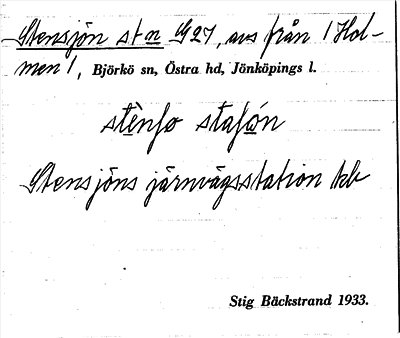 Stensjön stn G27, avs från 1 Hol-
men 1, Björkö sn, Östra hd, Jönköpings l.
Stensjöns järnvägsstation
Stig Bäckstrand 1933.